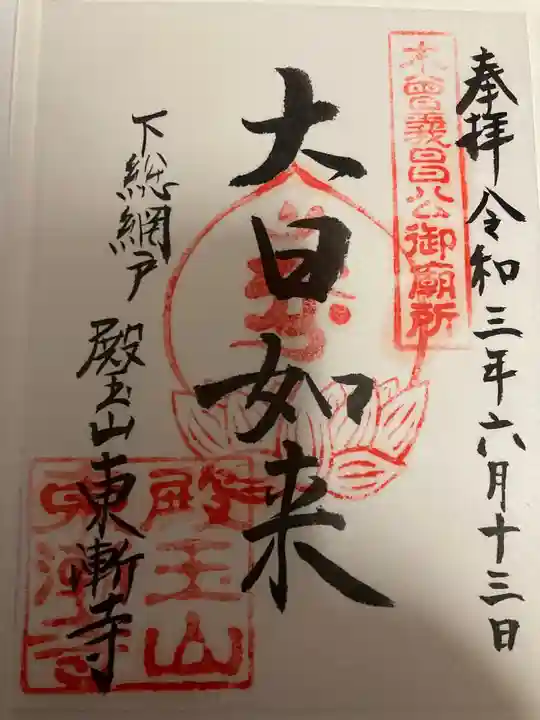 奉拝 令和三年六月十三日
木曾義昌公御廟所
大日如来
下総網戸 殿玉山 東漸寺
殿玉山
東漸寺